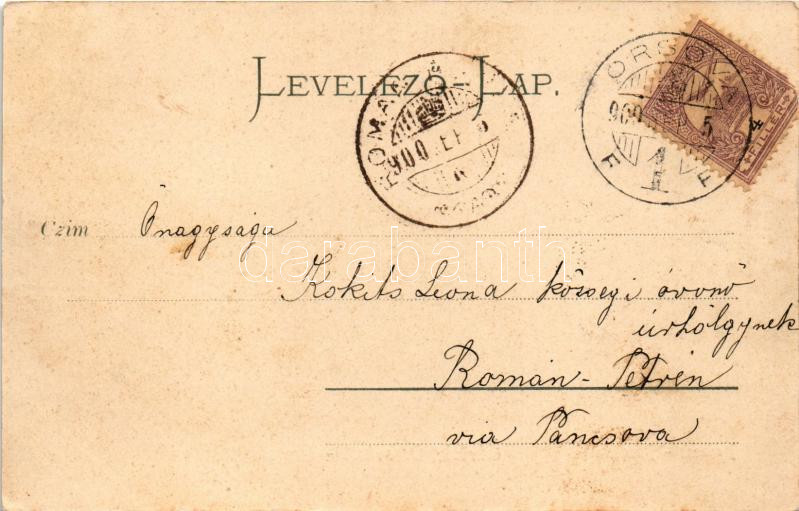 LEVELEZŐ-LAP.
ORSOVA
900
5
FILLER
ROMÁN
900
Czim Őnagysága
Kokits Leona községi óvonő
úrhölgynek
Román-Petrén
via Páncsova
darabanth